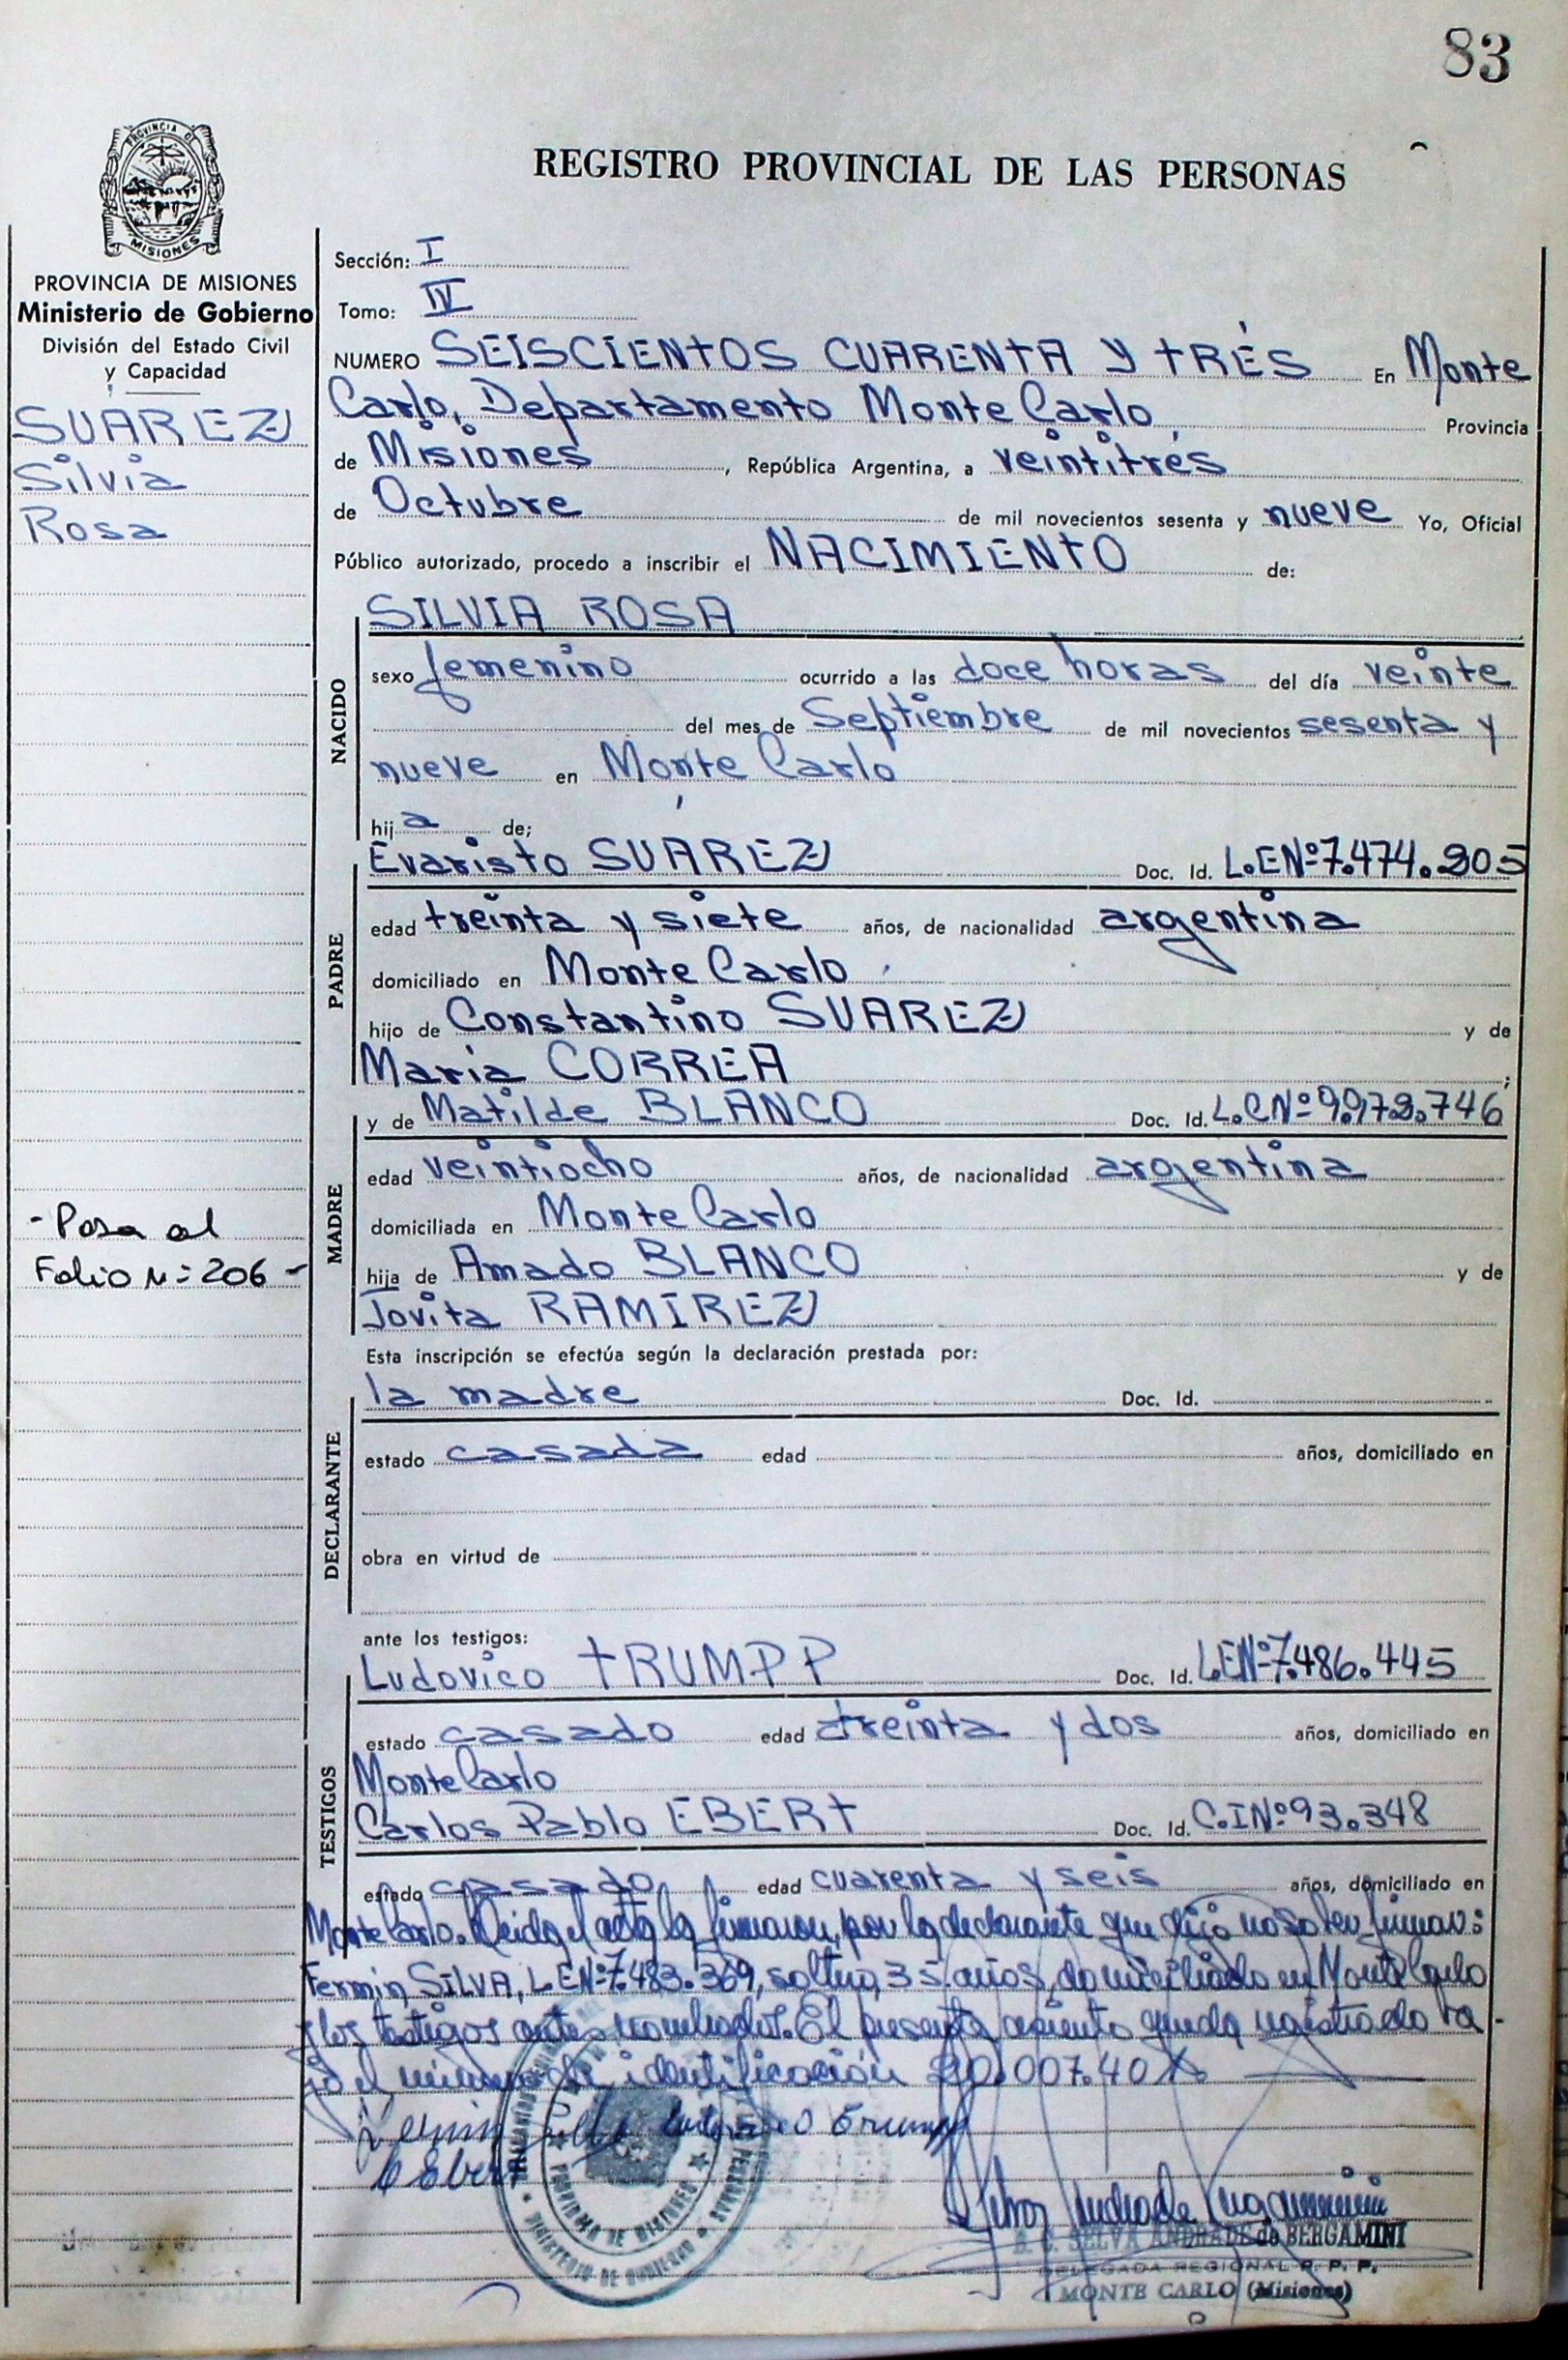 83
PROVINCIA DE
MISIONES
REGISTRO PROVINCIAL DE LAS PERSONAS
PROVINCIA DE MISIONES
Ministerio de Gobierno
División del Estado Civil
y Capacidad
SUAREZ
Silvia
Rosa
- Pasa al
Folio Nº 206 -
Sección: I
Tomo: IV
NUMERO SEISCIENTOS CUARENTA Y TRÉS En Monte
Carlo, Departamento Monte Carlo Provincia
de Misiones, República Argentina, a veintitrés
de Octubre de mil novecientos sesenta y nueve Yo, Oficial
Público autorizado, procedo a inscribir el NACIMIENTO de:
NACIDO
SILVIA ROSA
sexo femenino ocurrido a las doce horas del día veinte
del mes de Septiembre de mil novecientos sesenta y
nueve en Monte Carlo
hij a de;
PADRE
Evaristo SUÁREZ Doc. Id. L.E.Nº 7.474.205
edad treinta y siete años, de nacionalidad argentina
domiciliado en Monte Carlo
hijo de Constantino SUAREZ y de
Maria CORREA;
MADRE
y de Matilde BLANCO Doc. Id. L.C.Nº 9.972.746
edad veintiocho años, de nacionalidad argentina
domiciliada en Monte Carlo
hija de Amado BLANCO y de
Jovita RAMIREZ
Esta inscripción se efectúa según la declaración prestada por:
DECLARANTE
la madre Doc. Id.
estado casada edad años, domiciliado en
obra en virtud de
ante los testigos:
TESTIGOS
Ludovico TRUMPP Doc. Id. L.E.Nº 7.486.445
estado casado edad treinta y dos años, domiciliado en
Monte Carlo
Carlos Pablo EBERT Doc. Id. C.I.Nº 93.348
estado casado edad cuarenta y seis años, domiciliado en
Monte Carlo. Leida el acta la firmaron, por la declarante que dijo no saber firmar:
Fermin SILVA, L.E.Nº 7.483.369, soltero, 35 años, domiciliado en Monte Carlo
y los testigos antes nombrados. El presente asiento queda registrado ba-
jo el número de identificación 20.007.40
Ludovico Trumpp
C Ebert
PROVINCIA DE MISIONES
MINISTERIO DE GOBIERNO
SELVA ANDRADE de BERGAMINI
DELEGADA REGIONAL R. P. P.
MONTE CARLO (Misiones)